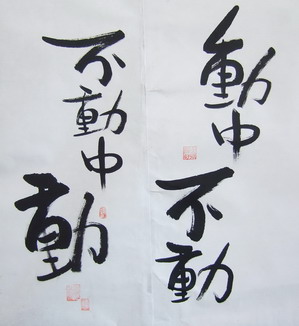 動中不動
不動中動